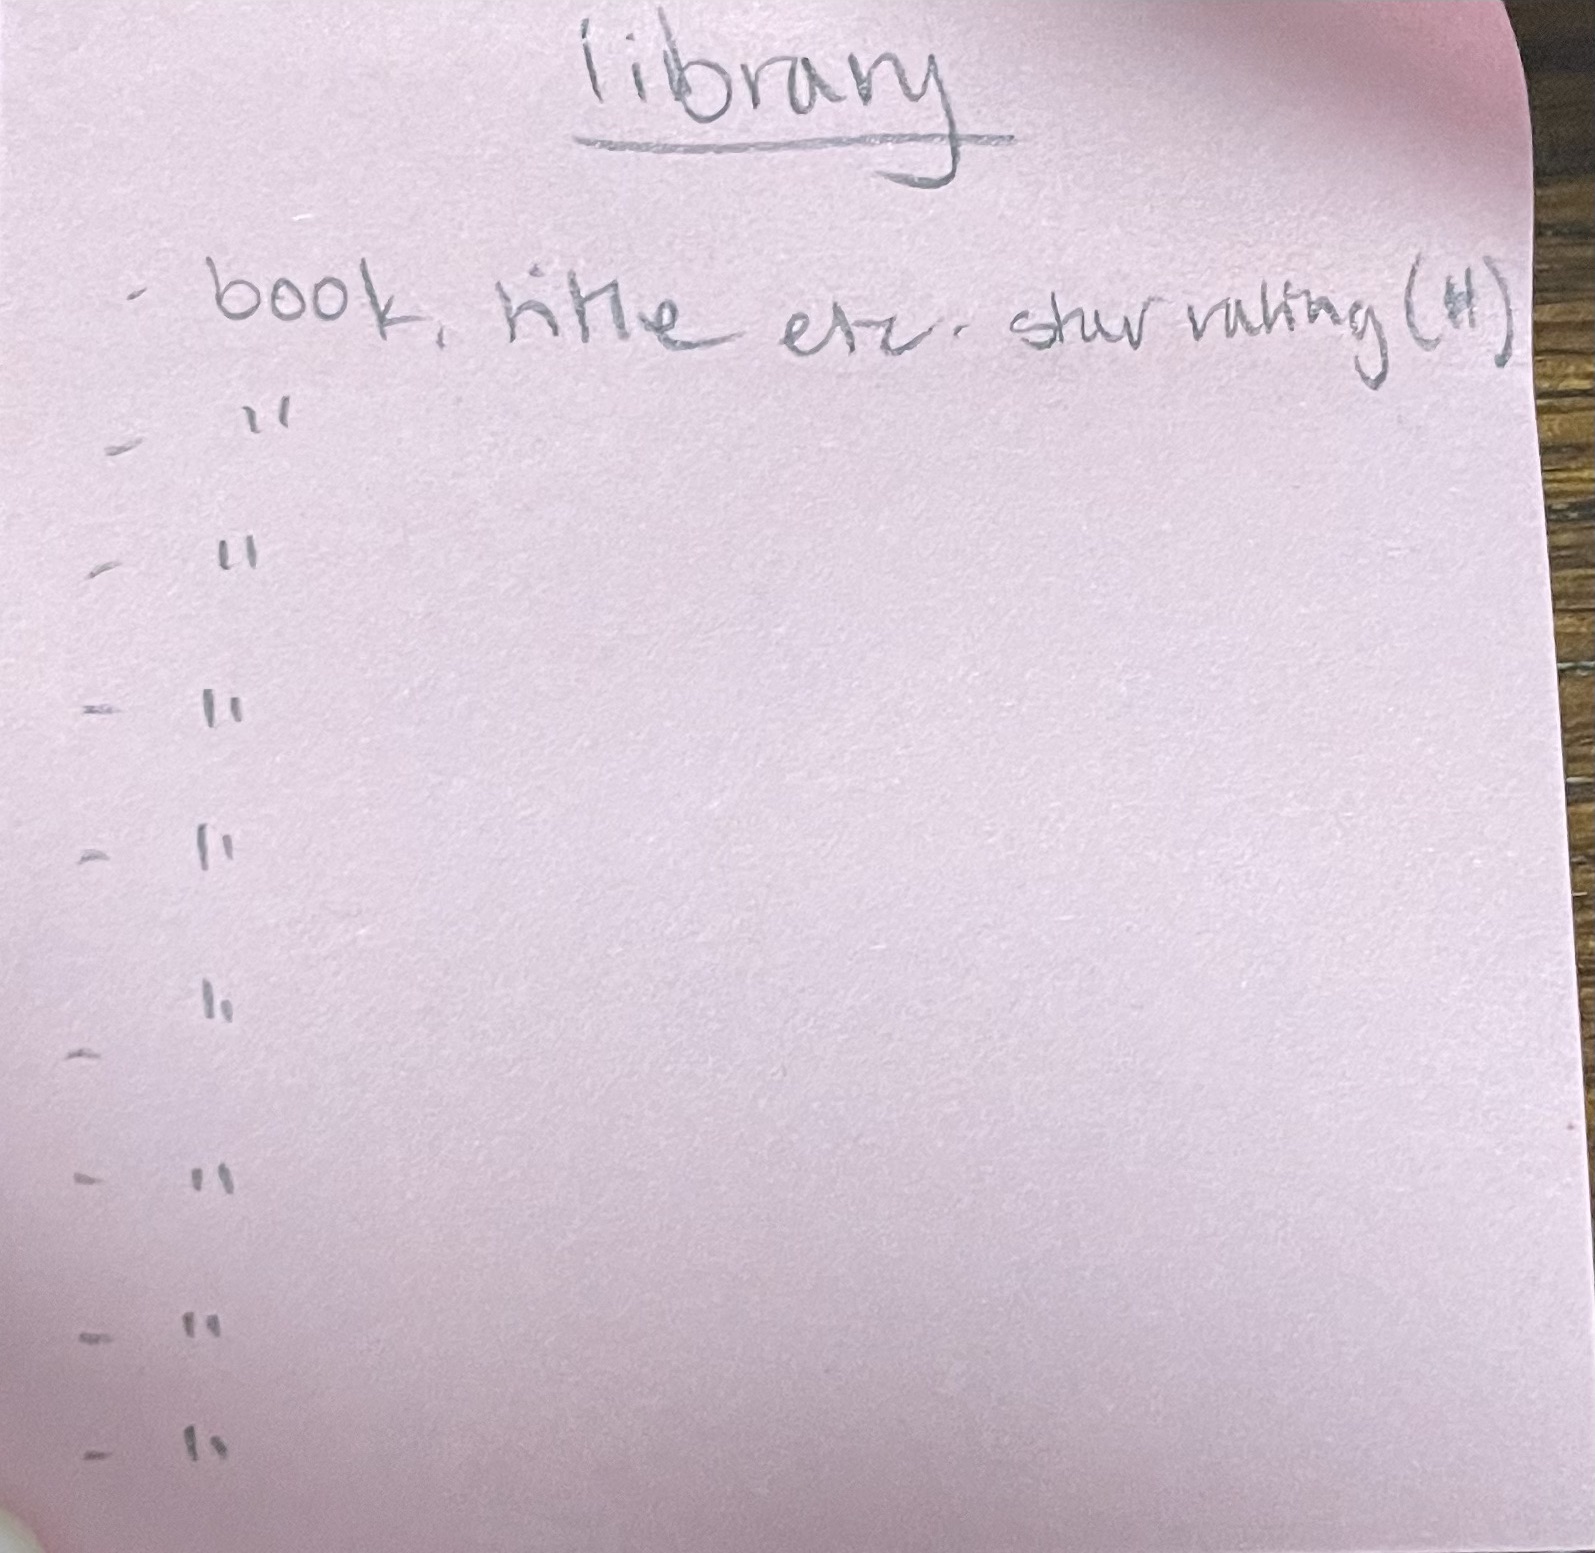 library
- book, title etc. star rating (#)
- "
- "
- "
- "
- "
- "
- "
- "